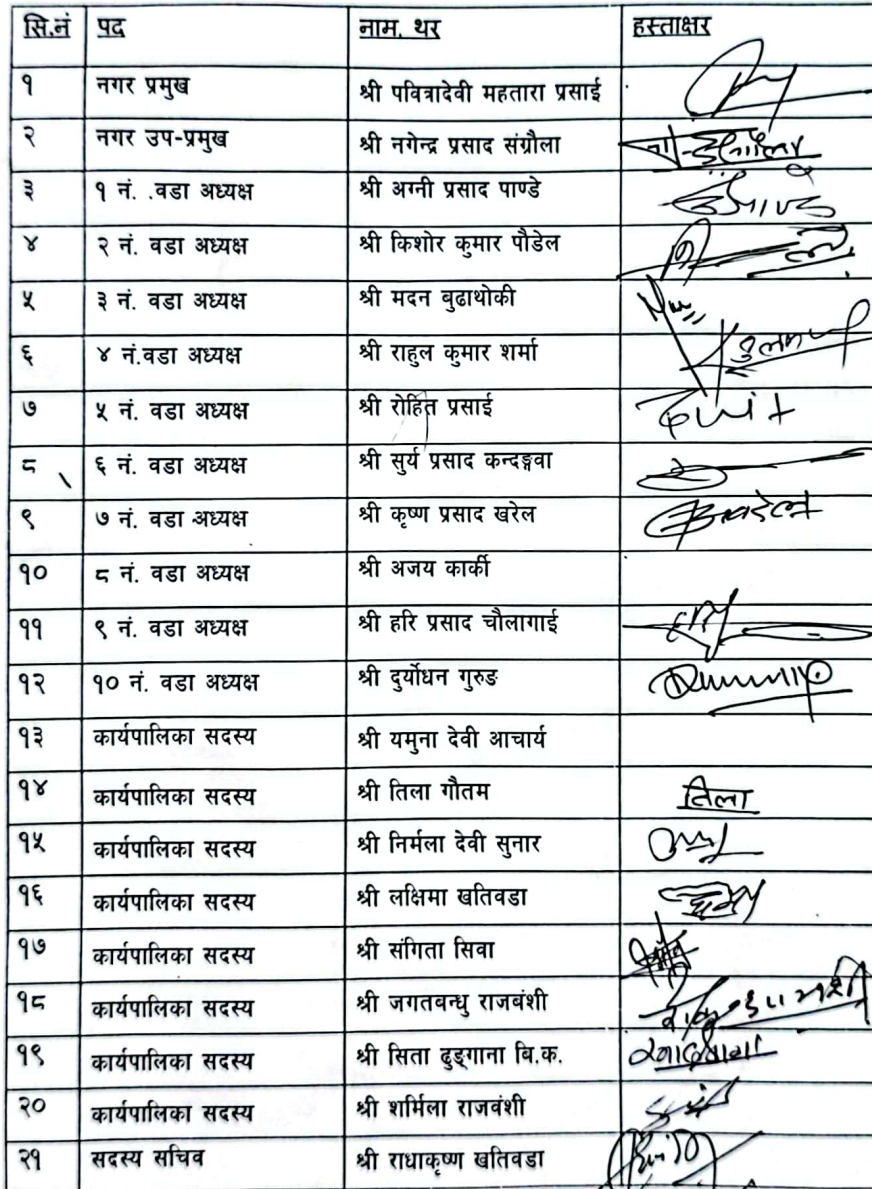 सि.नं पद नाम. थर हस्ताक्षर
१ नगर प्रमुख श्री पवित्रादेवी महतारा प्रसाई
२ नगर उप-प्रमुख श्री नगेन्द्र प्रसाद संग्रौला
३ १ नं. .वडा अध्यक्ष श्री अग्नी प्रसाद पाण्डे
४ २ नं. वडा अध्यक्ष श्री किशोर कुमार पौडेल
५ ३ नं. वडा अध्यक्ष श्री मदन बुढाथोकी
६ ४ नं.वडा अध्यक्ष श्री राहुल कुमार शर्मा
७ ५ नं. वडा अध्यक्ष श्री रोहित प्रसाई
८ ६ नं. वडा अध्यक्ष श्री सुर्य प्रसाद कन्दङ्गवा
९ ७ नं. वडा अध्यक्ष श्री कृष्ण प्रसाद खरेल
१० ८ नं. वडा अध्यक्ष श्री अजय कार्की
११ ९ नं. वडा अध्यक्ष श्री हरि प्रसाद चौलागाई
१२ १० नं. वडा अध्यक्ष श्री दुर्योधन गुरुङ
१३ कार्यपालिका सदस्य श्री यमुना देवी आचार्य
१४ कार्यपालिका सदस्य श्री तिला गौतम तिला
१५ कार्यपालिका सदस्य श्री निर्मला देवी सुनार
१६ कार्यपालिका सदस्य श्री लक्षिमा खतिवडा
१७ कार्यपालिका सदस्य श्री संगिता सिवा
१८ कार्यपालिका सदस्य श्री जगतबन्धु राजबंशी
१९ कार्यपालिका सदस्य श्री सिता ढुङ्गाना बि.क.
२० कार्यपालिका सदस्य श्री शर्मिला राजवंशी
२१ सदस्य सचिव श्री राधाकृष्ण खतिवडा